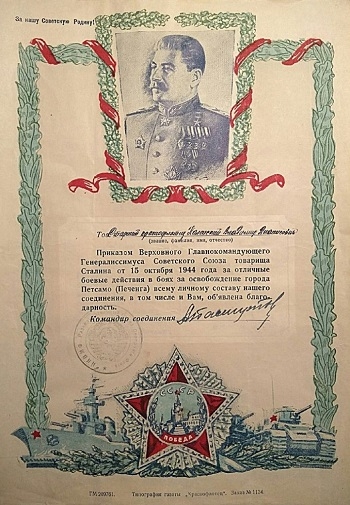 За нашу Советскую Родину!
Тов.
(звание, фамилия, имя, отчество)
Приказом Верховного Главнокомандующего
Генералиссимуса Советского Союза товарища
Сталина от 15 октября 1944 года за отличные
боевые действия в боях за освобождение города
Петсамо (Печенга) всему личному составу нашего
соединения, в том числе и Вам, объявлена благо-
дарность.
Командир соединения
СССР
ПОБЕДА
Типография газеты